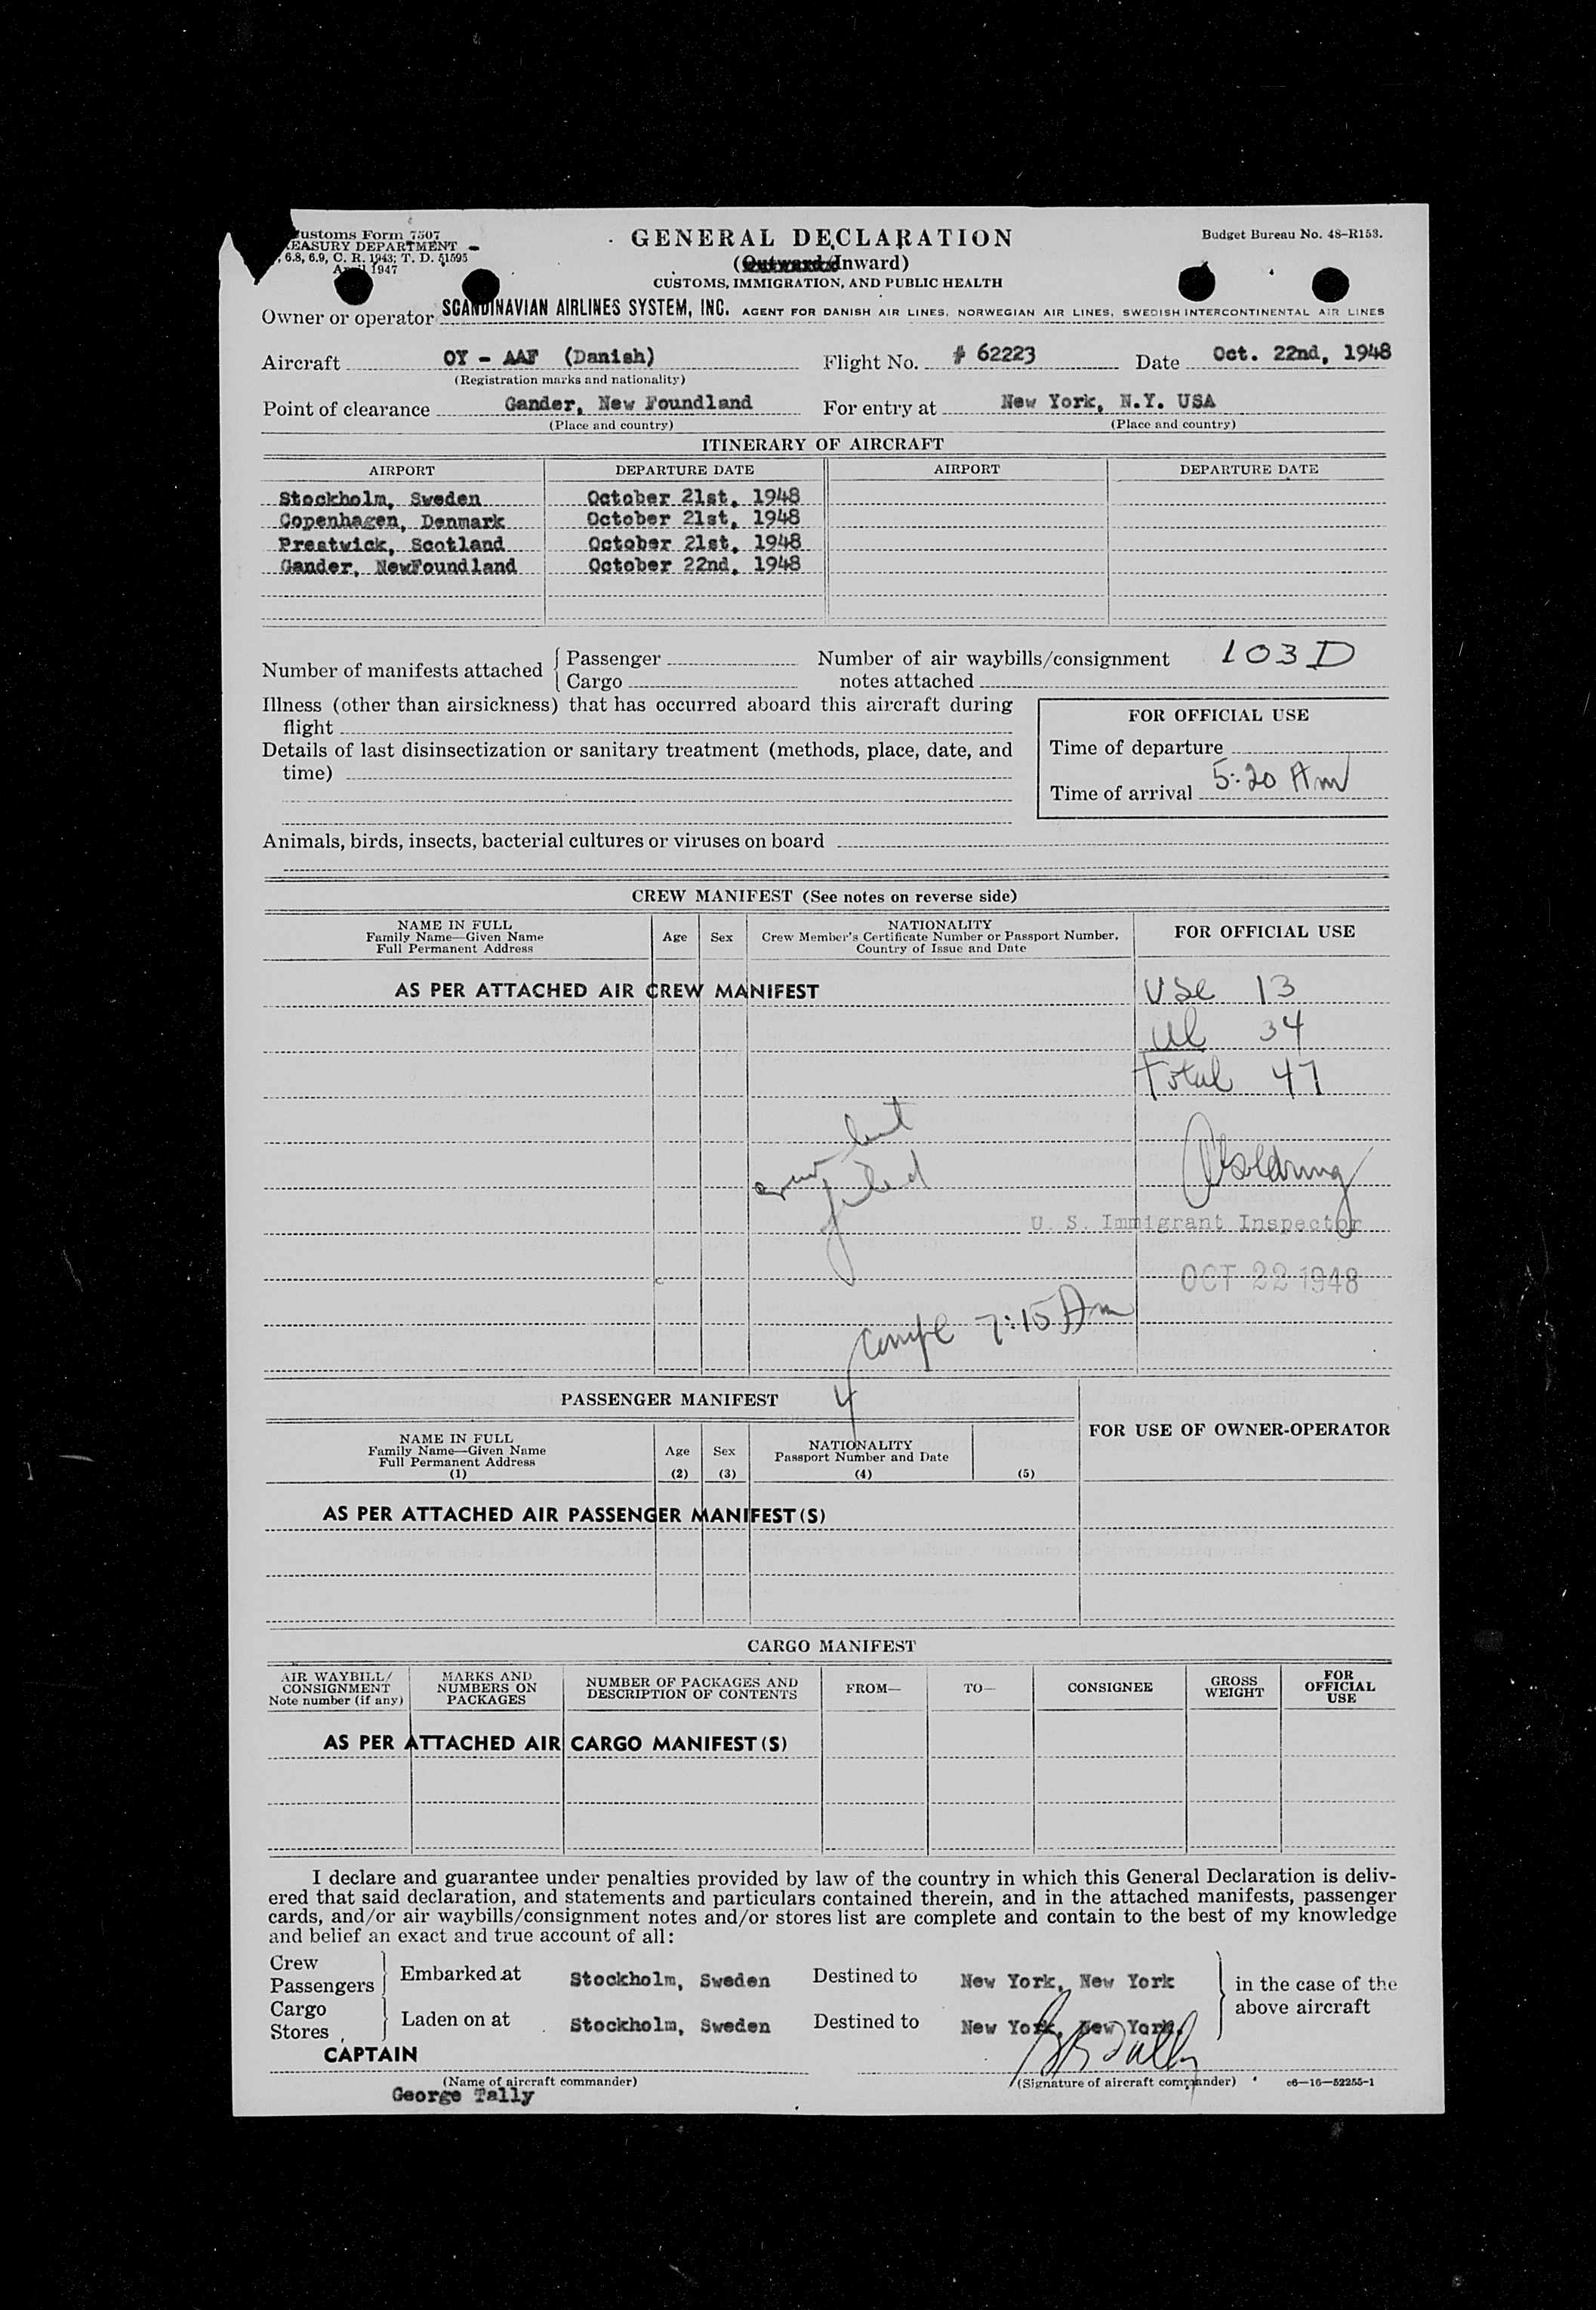 Customs Form 7507
TREASURY DEPARTMENT
6.8, 6.9, C. R. 1943; T. D. 51595
April 1947
GENERAL DECLARATION
(Outward/Inward)
CUSTOMS, IMMIGRATION, AND PUBLIC HEALTH
Budget Bureau No. 48-R153.
Owner or operator SCANDINAVIAN AIRLINES SYSTEM, INC. AGENT FOR DANISH AIR LINES, NORWEGIAN AIR LINES, SWEDISH INTERCONTINENTAL AIR LINES
Aircraft OY - AAF (Danish) Flight No. # 62223 Date Oct. 22nd, 1948
(Registration marks and nationality)
Point of clearance Gander, New Foundland For entry at New York, N.Y. USA
(Place and country) (Place and country)
ITINERARY OF AIRCRAFT
AIRPORT DEPARTURE DATE AIRPORT DEPARTURE DATE
Stockholm, Sweden October 21st, 1948
Copenhagen, Denmark October 21st, 1948
Prestwick, Scotland October 21st, 1948
Gander, NewFoundland October 22nd, 1948
Number of manifests attached { Passenger
Cargo
Number of air waybills/consignment notes attached
103D
Illness (other than airsickness) that has occurred aboard this aircraft during
flight
Details of last disinsectization or sanitary treatment (methods, place, date, and
time)
FOR OFFICIAL USE
Time of departure
Time of arrival 5:20 Am
Animals, birds, insects, bacterial cultures or viruses on board
CREW MANIFEST (See notes on reverse side)
NAME IN FULL
Family Name—Given Name
Full Permanent Address
Age
Sex
NATIONALITY
Crew Member's Certificate Number or Passport Number,
Country of Issue and Date
FOR OFFICIAL USE
AS PER ATTACHED AIR CREW MANIFEST
USC 13
al 34
Total 47
crew list
filed
U. S. Immigrant Inspector
OCT 22 1948
compl 7:15 Am
PASSENGER MANIFEST
FOR USE OF OWNER-OPERATOR
NAME IN FULL
Family Name—Given Name
Full Permanent Address
(1)
Age
(2)
Sex
(3)
NATIONALITY
Passport Number and Date
(4)
(5)
AS PER ATTACHED AIR PASSENGER MANIFEST(S)
CARGO MANIFEST
AIR WAYBILL/
CONSIGNMENT
Note number (if any)
MARKS AND
NUMBERS ON
PACKAGES
NUMBER OF PACKAGES AND
DESCRIPTION OF CONTENTS
FROM—
TO—
CONSIGNEE
GROSS
WEIGHT
FOR
OFFICIAL
USE
AS PER ATTACHED AIR CARGO MANIFEST(S)
I declare and guarantee under penalties provided by law of the country in which this General Declaration is deliv-
ered that said declaration, and statements and particulars contained therein, and in the attached manifests, passenger
cards, and/or air waybills/consignment notes and/or stores list are complete and contain to the best of my knowledge
and belief an exact and true account of all:
Crew
Passengers } Embarked at Stockholm, Sweden Destined to New York, New York
Cargo
Stores } Laden on at Stockholm, Sweden Destined to New York, New York.
in the case of the
above aircraft
CAPTAIN
(Name of aircraft commander)
George Tally
(Signature of aircraft commander)
c6—16—52255-1